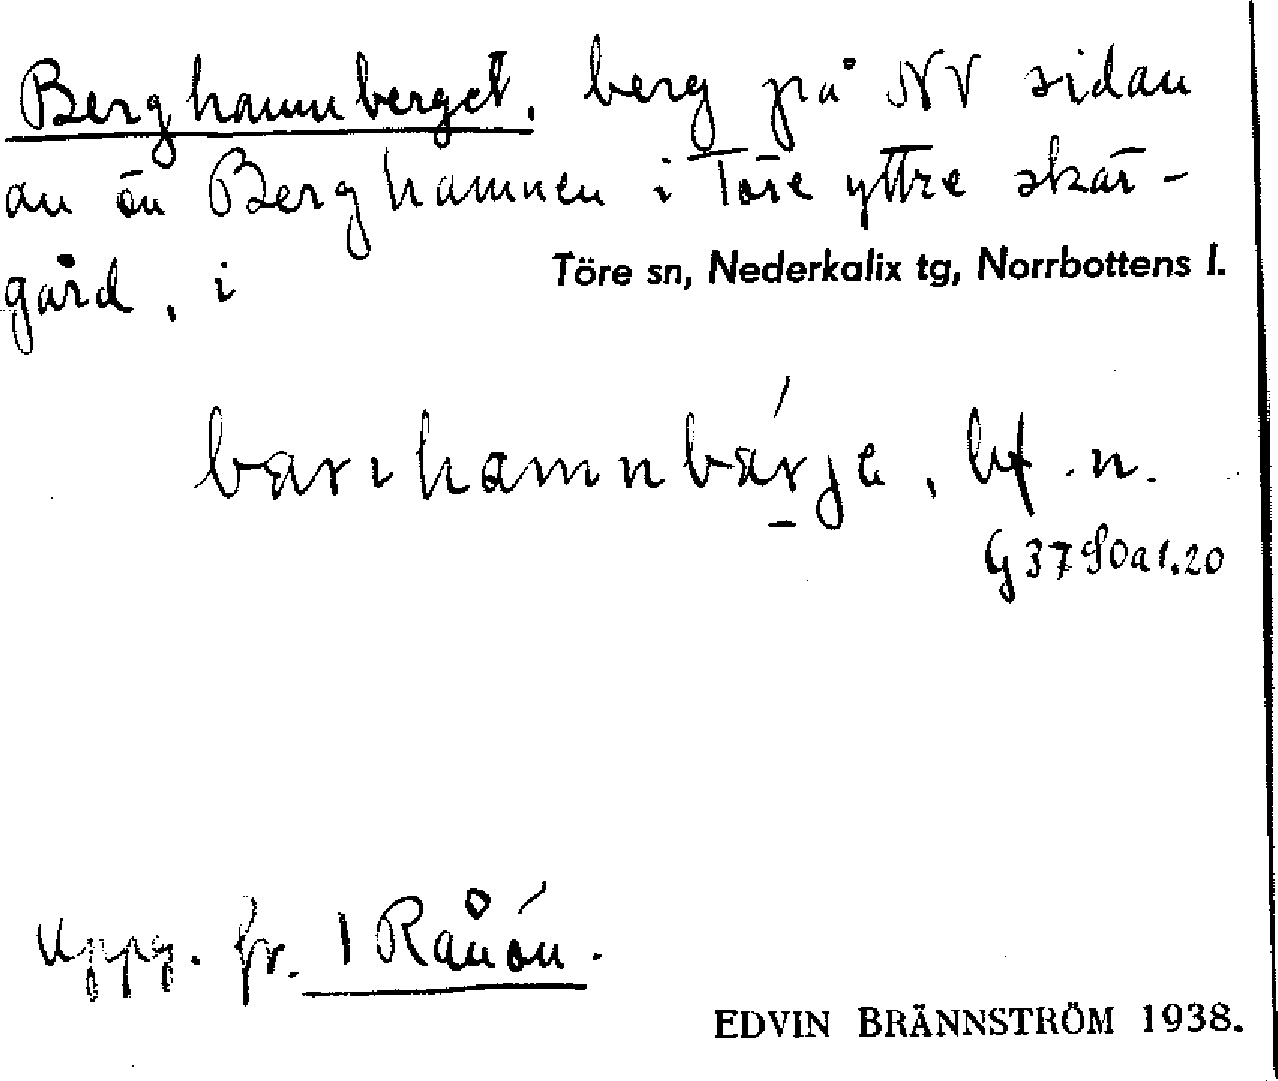 Berghamnberget, berg på NV sidan
av ön Berghamnen i Töre yttre skär-
gård, i Töre sn, Nederkalix tg, Norrbottens l.
bf. n.
G 3790a1.20
Uppg. fr. 1 Rånön.
EDVIN BRÄNNSTRÖM 1938.